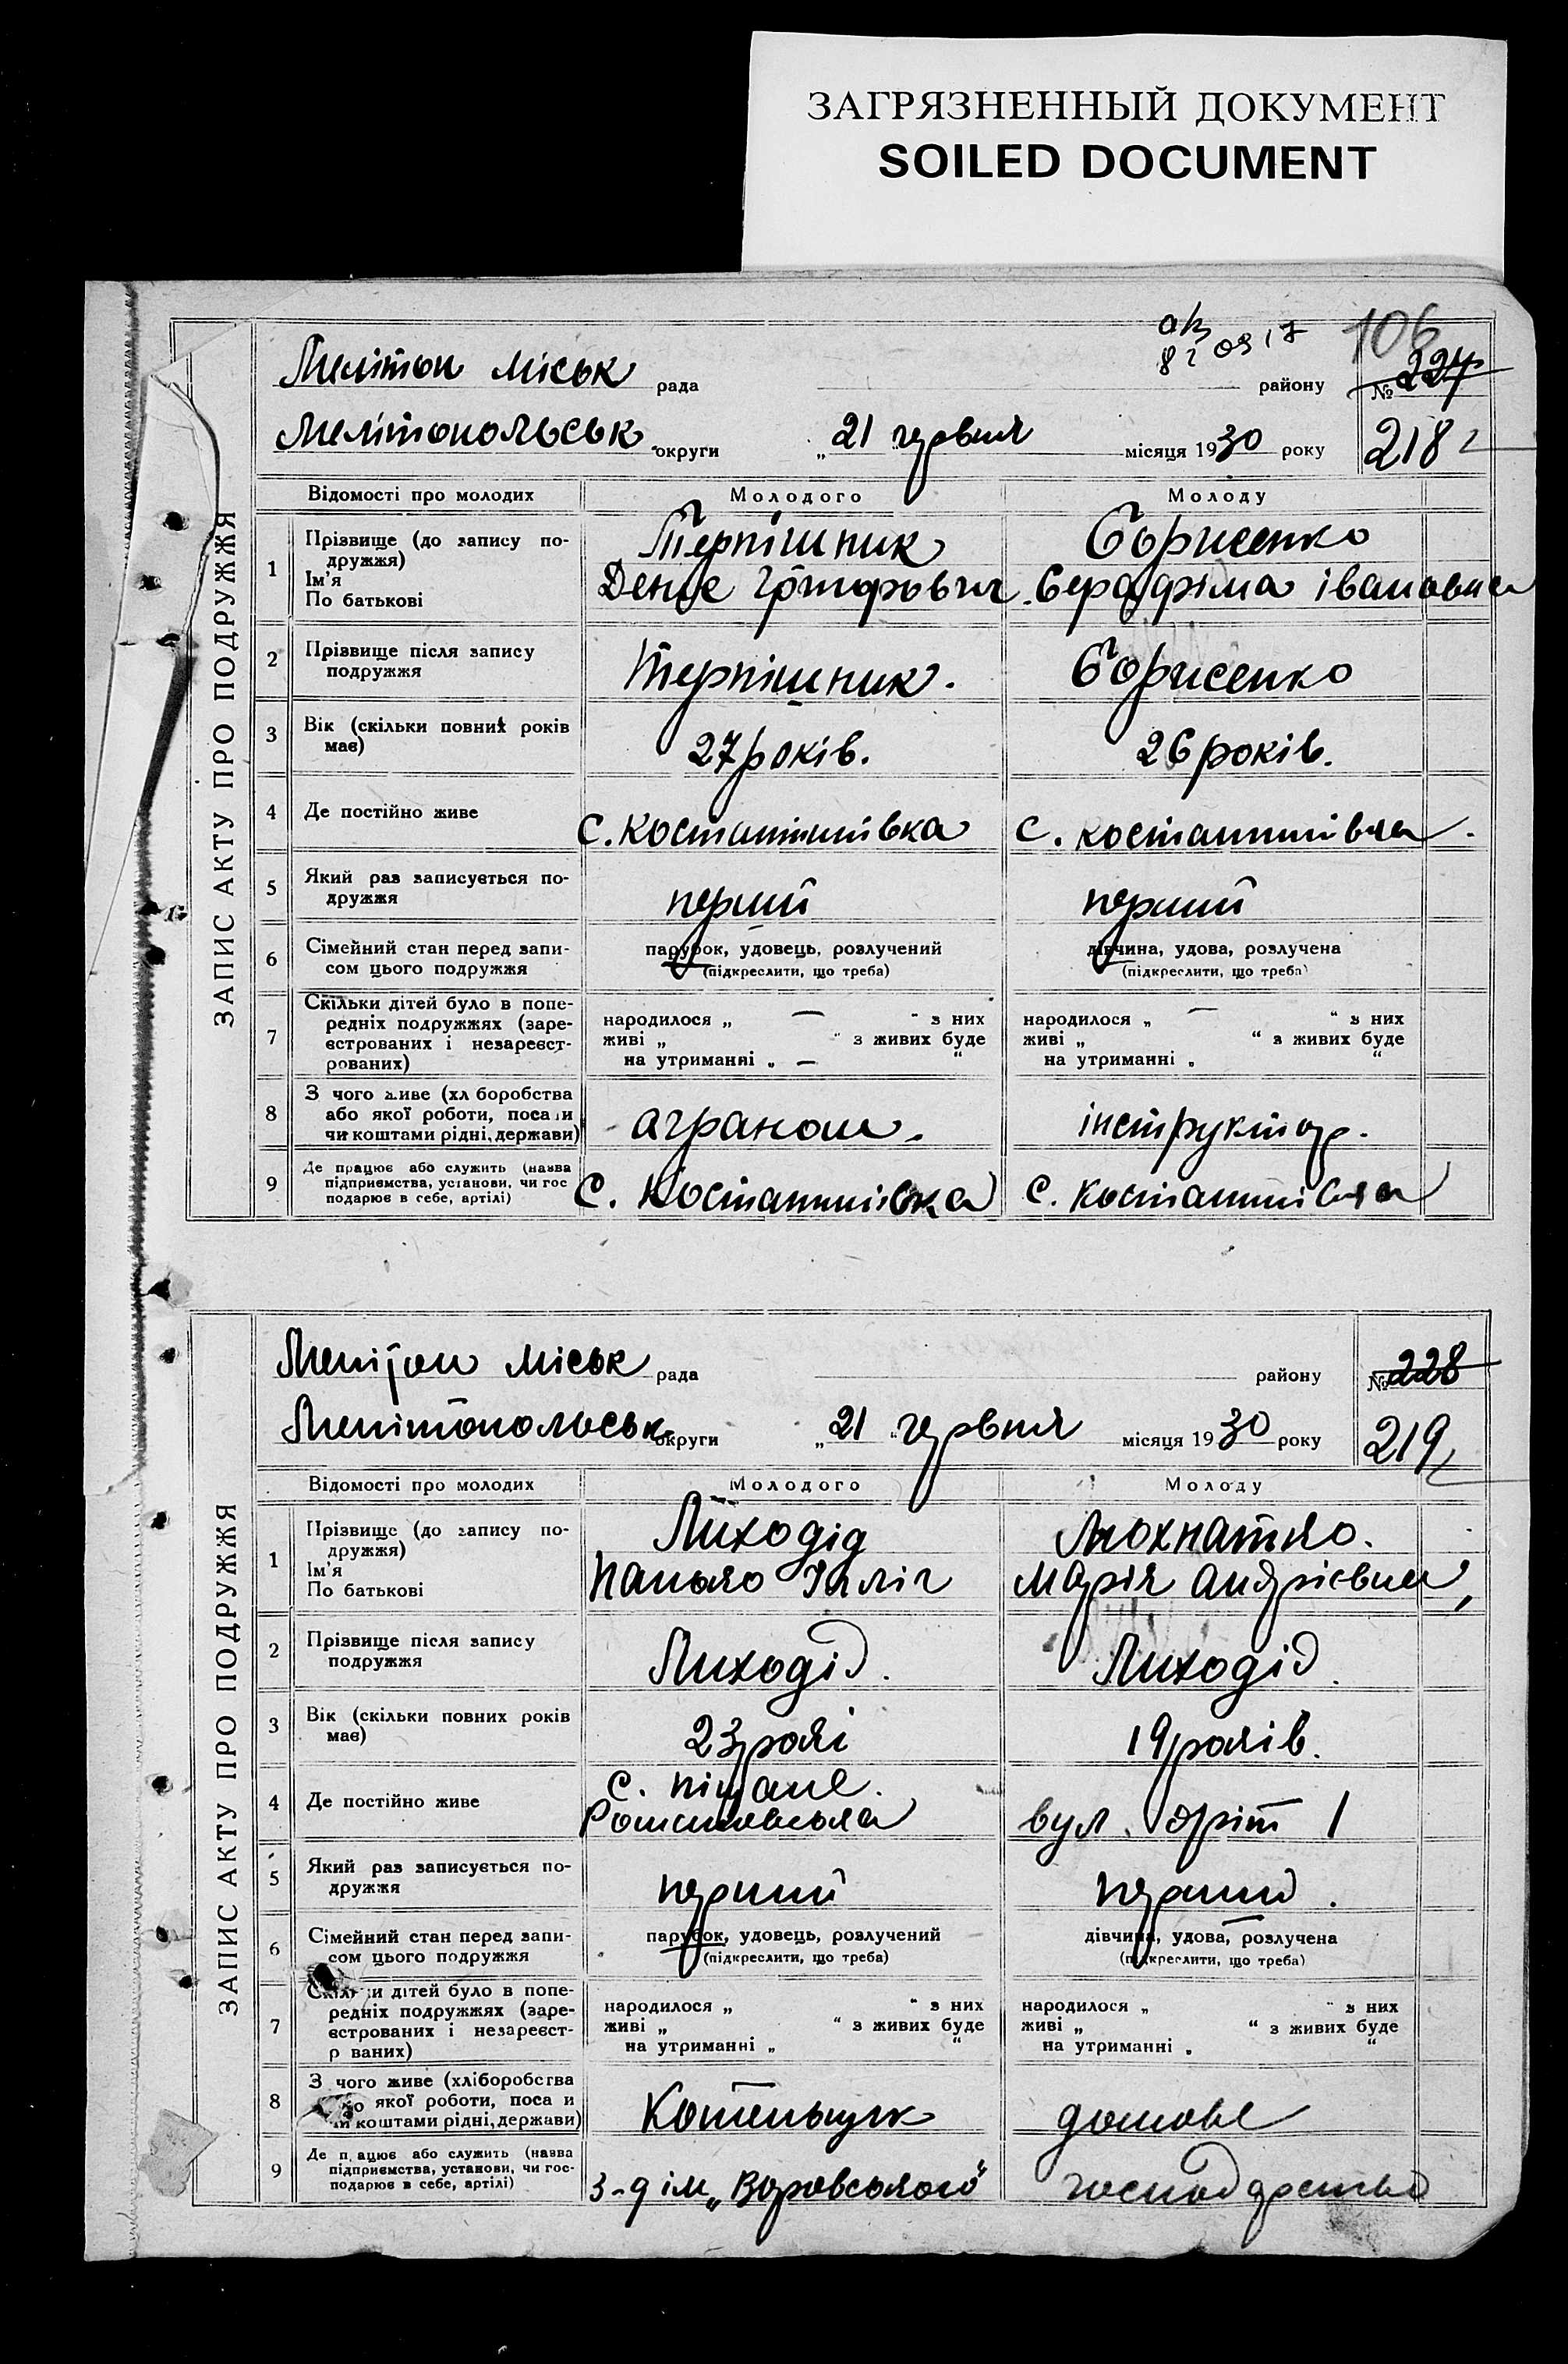 ЗАГРЯЗНЕННЫЙ ДОКУМЕНТ
SOILED DOCUMENT
106
ЗАПИС АКТУ ПРО ПОДРУЖЖЯ
Мелітоп міськ рада району № 227
Мелітопольськ округи „ 21 червня місяця 1930 року 218
Відомості про молодих Молодого Молоду
1 Прізвище (до запису по- Терпішник Борисенко
дружжя)
Ім'я Денис Серафіма Івановна
По батькові
2 Прізвище після запису Терпішник. Борисенко
подружжя
3 Вік (скільки повних років 27 років. 26 років.
має)
4 Де постійно живе С. Костантинівка С. Костантинівка.
5 Який раз записується по- перший перший
дружжя
6 Сімейний стан перед запи- парубок, удовець, розлучений дівчина, удова, розлучена
сом цього подружжя (підкреслити, що треба) (підкреслити, що треба)
7 Скільки дітей було в попе-
редніх подружжях (заре- народилося „ — “ з них народилося „ — “ з них
єстрованих і незареєст- живі „ “ з живих буде живі „ “ з живих буде
рованих) на утриманні „ — “ на утриманні „ “
8 З чого живе (хл боробства
або якої роботи, поса и аграном. інструктор.
чи коштами рідні, держави)
9 Де працює або служить (назва
підприємства, установи, чи гос С. Костантинівка С. Костантинівка
подарює в себе, артілі)
ЗАПИС АКТУ ПРО ПОДРУЖЖЯ
Мелітоп міськ рада району № 228
Мелітопольськ округи „ 21 “ червня місяця 1930 року 219
Відомості про молодих Молодого Молоду
1 Прізвище (до запису по- Лиходід Мохнатко.
дружжя)
Ім'я Панько Ілліч Марія Андрієвна
По батькові
2 Прізвище після запису Лиходід. Лиходід.
подружжя
3 Вік (скільки повних років 23 рокі 19 років.
має)
4 Де постійно живе С. Піщане. вул. 1
5 Який раз записується по- перший перший.
дружжя
6 Сімейний стан перед запи- парубок, удовець, розлучений дівчина, удова, розлучена
сом цього подружжя (підкреслити, що треба) (підкреслити, що треба)
7 дітей було в попе-
редніх подружжях (заре- народилося „ “ з них народилося „ “ з них
єстрованих і незареєст- живі „ “ з живих буде живі „ “ з живих буде
р ваних) на утриманні „ “ на утриманні „ “
8 З чого живе (хліборобства
якої роботи, поса и Котельщик домове
чи коштами рідні, держави)
9 Де п ацює або служить (назва
підприємства, установи, чи гос- з-д ім. „Воровського“ господарство
подарює в себе, артілі)